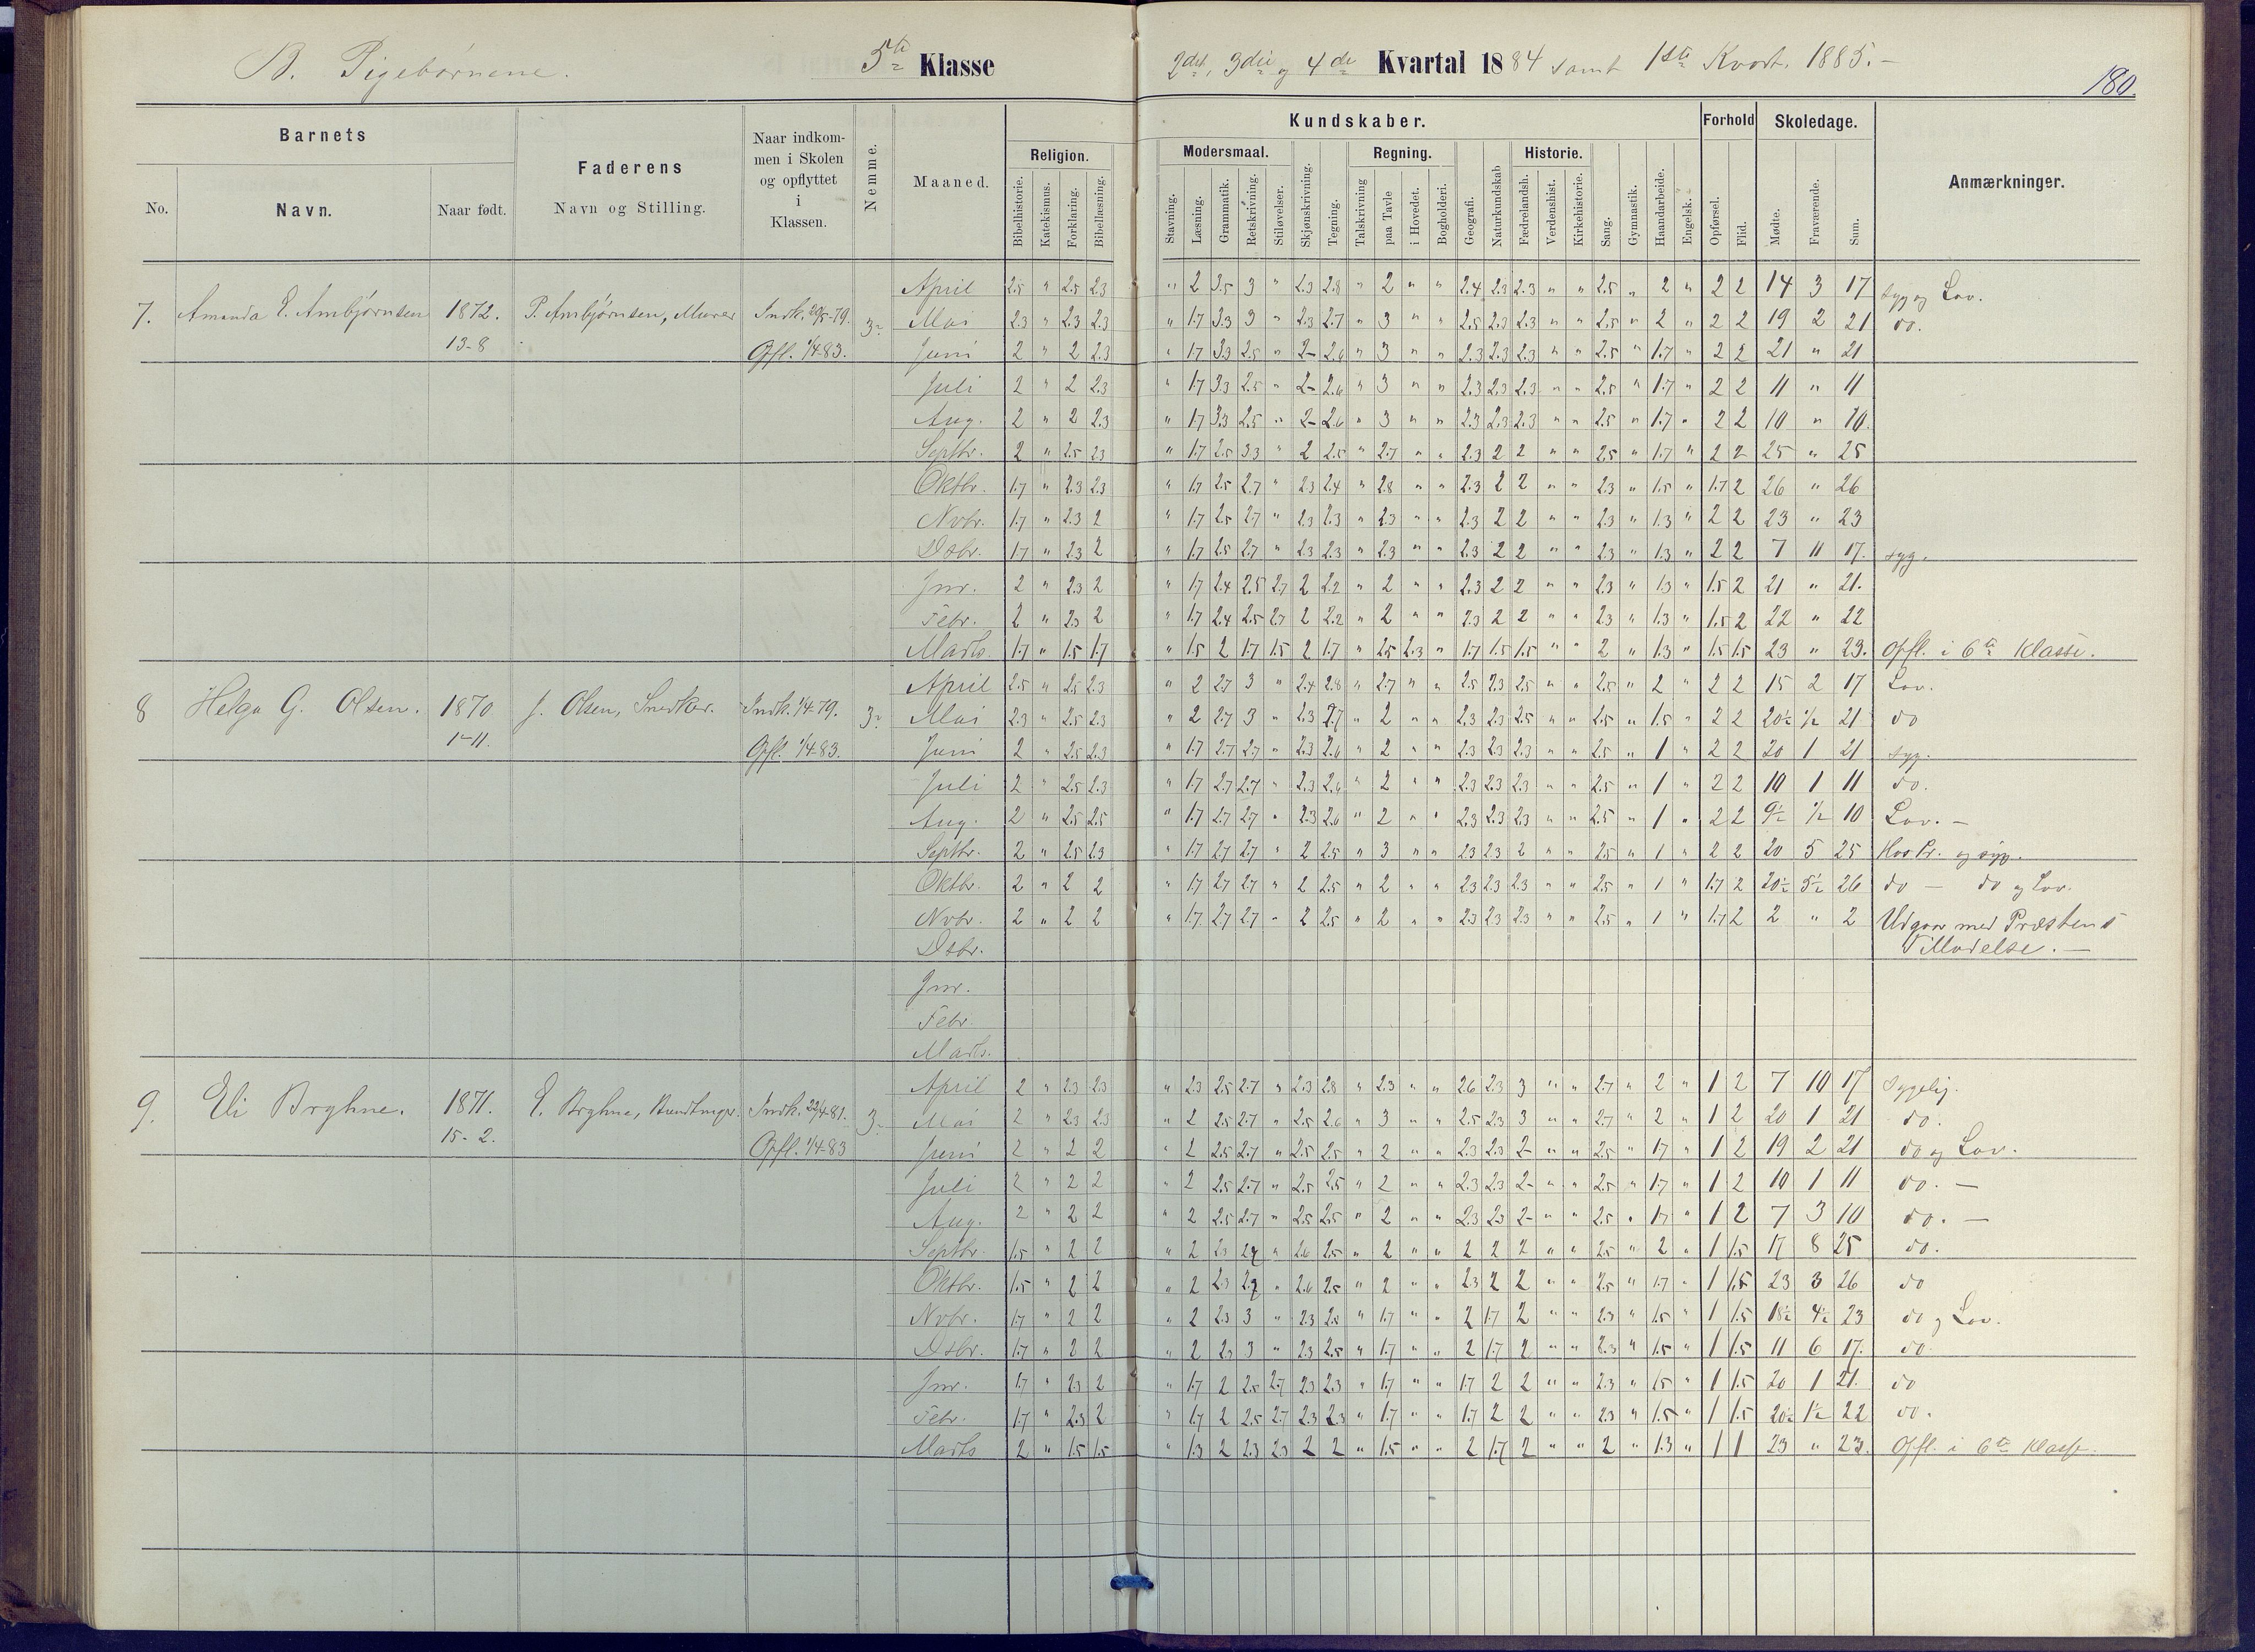 B. Pigebørnene. 5te Klasse 2det, 3die og 4de Kvartal 1884 samt 1ste Kvart. 1885.-
180.
Barnets
No. Navn. Naar født.
Faderens
Navn og Stilling.
Naar indkom-
men i Skolen
og opflyttet
i
Klassen.
Nemme.
Maaned.
Kundskaber.
Religion.
Bibelhistorie. Katekismus. Forklaring. Bibellæsning.
Modersmaal.
Stavning. Læsning. Grammatik. Retskrivning. Stiløvelser.
Skjønskrivning. Tegning.
Regning.
Talskrivning paa Tavle i Hovedet. Bogholderi.
Geografi. Naturkundskab
Historie.
Fædrelandsh. Verdenshist. Kirkehistorie.
Sang. Gymnastik. Haandarbeide. Engelsk.
Forhold
Opførsel. Flid.
Skoledage.
Mødte. Fraværende. Sum.
Anmærkninger.
7. Amanda E. Ambjørnsen 1872. 13-8 P. Ambjørnsen, Murer
Opfl. 1/4-83.
3-
April 2.5 " 2.5 2.3 " 2 3.5 3 " 2.3 2.8 " 2 " " 2.4 2.3 2.3 " " 2.5 " 2 " 2 2 14 3 17 syg og Lov.
Mai 2.3 " 2.3 2.3 " 1.7 3.3 3 " 2.3 2.7 " 3 " " 2.5 2.3 2.3 " " 2.5 " 2 " 2 2 19 2 21 do.
Juni 2 " 2 2.3 " 1.7 3.3 2.5 " 2- 2.6 " 3 " " 2.3 2.3 2.3 " " 2.5 " 1.7 " 2 2 21 " 21
Juli 2 " 2 2.3 " 1.7 3.3 2.5 " 2- 2.6 " 3 " " 2.3 2.3 2.3 " " 2.5 " 1.7 " 2 2 11 " 11
Aug. 2 " 2 2.3 " 1.7 3.3 2.5 " 2- 2.6 " 3 " " 2.3 2.3 2.3 " " 2.5 " 1.7 " 2 2 10 " 10.
Septbr. 2 " 2.5 2.3 " 1.7 2.5 3.3 " 2 2.5 " 2.7 " " 2.3 2 2 " " 2.5 " 1.7 " 2 2 25 " 25
Oktbr. 1.7 " 2.3 2.3 " 1.7 2.5 2.7 " 2.3 2.4 " 2.8 " " 2.3 2 2 " " 2.3 " 1.5 " 1.7 2 26 " 26
Nvbr. 1.7 " 2.3 2 " 1.7 2.5 2.7 " 2.3 2.3 " 2.3 " " 2.3 2 2 " " 2.3 " 1.3 " 2 2 23 " 23
Dsbr. 1.7 " 2.3 2 " 1.7 2.5 2.7 " 2.3 2.3 " 2.3 " " 2.3 2 2 " " 2.3 " 1.3 " 2 2 7 11 17. syg.
Jnr. 2 " 2.3 2 " 1.7 2.4 2.5 2.7 2 2.2 " 2 " " 2.3 2 2 " " 2.3 " 1.3 " 1.5 2 21 " 21.
Febr. 2 " 2.3 2 " 1.7 2.4 2.5 2.7 2 2.2 " 2 " " 2.3 2 2 " " 2.3 " 1.3 " 1.5 2 22 " 22
Marts. 1.7 " 1.5 1.7 " 1.5 2 1.7 1.5 2 1.7 " 2.5 2.3 " 1.7 1.5 1.5 " " 2 " 1.3 " 1.5 1.5 23 " 23. Opfl. i 6te Klasse.
8 Helga G. Olsen. 1870 1-11. J. Olsen, Snedker. Indk. 1/4-79.
Opfl. 1/4-83.
3-
April 2.5 " 2.5 2.3 " 2 2.7 3 " 2.4 2.8 " 2.7 " " 2.5 2.3 2.5 " " 2.5 " 2 " 2 2 15 2 17 Lov.
Mai 2.3 " 2.5 2.3 " 2 2.7 3 " 2.3 2.7 " 2 " " 2.3 2.3 2.5 " " 2.5 " 1.5 " 2 2 20½ ½ 21 do
Juni 2 " 2.5 2.3 " 1.7 2.7 2.7 " 2.3 2.6 " 2 " " 2.3 2.3 2.3 " " 2.5 " 1 " 2 2 20 1 21 syg.
Juli 2 " 2.5 2.3 " 1.7 2.7 2.7 " 2.3 2.6 " 2 " " 2.3 2.3 2.3 " " 2.5 " 1 " 2 2 10 1 11 do.
Aug. 2 " 2.5 2.5 " 1.7 2.7 2.7 " 2.3 2.6 " 2 " " 2.3 2.3 2.3 " " 2.5 " 1 " 2 2 9½ ½ 10 Lov. -
Septbr. 2 " 2.5 2.3 " 1.7 2.7 2.7 " 2 2.5 " 3 " " 2.3 2.3 2 " " 2.5 " 1 " 2 2 20 5 25 Hos Pr. og syg.
Oktbr. 2 " 2 2 " 1.7 2.7 2.7 " 2 2.5 " 2 " " 2.3 2.3 2.3 " " 2.5 " 1 " 1.7 2 20½ 5½ 26 do - do og Lov.
Nvbr. 2 " 2 2 " 1.7 2.7 2.7 " 2 2.5 " 2 " " 2.3 2.3 2.3 " " 2.5 " 1 " 1.7 2 2 " 2 Udgaar med Præstens
Dsbr. Tilladelse. -
Jnr.
Febr.
Marts.
9. Eli Bryhne. 1871. 15-2. E. Bryhne,
Opfl. 1/4-83
3-
April 2 " 2.3 2.3 " 2.3 2.5 2.7 " 2.3 2.8 " 2.3 " " 2.6 2.3 3 " " 2.7 " 2 " 1 2 7 10 17 sygelig.
Mai 2 " 2.3 2.3 " 2 2.5 2.7 " 2.5 2.6 " 3 " " 2.5 2.3 3 " " 2.7 " 2 " 1 2 20 1 21 do.
Juni 2 " 2 2 " 2 2.5 2.7 " 2.5 2.5 " 2 " " 2.3 2.3 2- " " 2.5 " 1.7 " 1 2 19 2 21 do og Lov.
Juli 2 " 2 2 " 2 2.5 2.7 " 2.5 2.5 " 2 " " 2.3 2.3 2- " " 2.5 " 1.7 " 1 2 10 1 11 do. -
Aug. 2 " 2 2 " 2 2.5 2.7 " 2.5 2.5 " 2 " " 2.3 2.3 2- " " 2.5 " 1.7 " 1 2 7 3 10 do. -
Septbr. 1.5 " 2 2 " 2 2.3 2.7 " 2.6 2.5 " 2 " " 2 2 2 " " 2.5 " 2 " 1 1.5 17 8 25 do.
Oktbr. 1.5 " 2 2 " 2 2.3 2.7 " 2.6 2.5 " 2 " " 2.3 2 2 " " 2.5 " 1.7 " 1 1.5 23 3 26 do
Nvbr. 1.7 " 2 2 " 2 2.3 3 " 2.3 2.5 " 1.7 " " 2 1.7 2 " " 2.3 " 1.5 " 1 1.5 18½ 4½ 23 do og Lov.
Dsbr. 1.7 " 2 2 " 2 2.3 3 " 2.3 2.5 " 1.7 " " 2 1.7 2 " " 2.3 " 1.5 " 1 1.5 11 6 17. do
Jnr. 1.7 " 2.3 2 " 1.7 2 2.5 2.7 2.3 2.3 " 1.7 " " 1.7 2 2 " " 2.3 " 1.5 " 1 1.5 20 1 21. do
Febr. 1.7 " 2.3 2 " 1.7 2 2.5 2.7 2.3 2.3 " 1.7 " " 1.7 2 2 " " 2.3 " 1.5 " 1 1.5 20½ 1½ 22 do.
Marts 2 " 1.5 1.5 " 1.3 2 2.3 2.3 2 2 " 1.5 " " 2 1.7 2 " " 2 " 1.3 " 1 1 23 " 23. Opfl. i 6te Klasse.